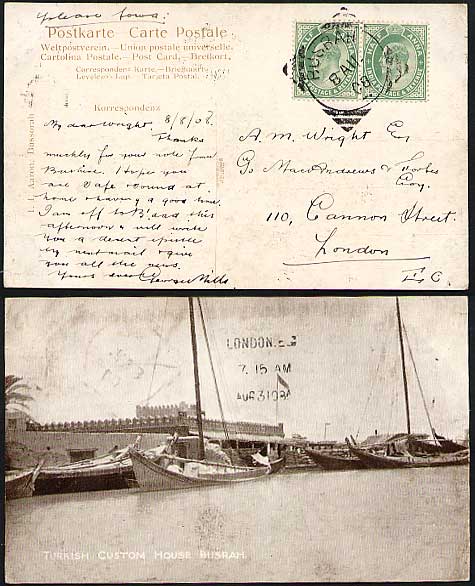 Postkarte Carte Postale
Weltpostverein. — Union postale universelle.
Cartolina Postale. — Post Card. — Brefkort.
Correspondenz-Karte. — Briefkaart.
Levelezo-Lap. — Tarjeta Postal.
BUSRAH
8 AU
08
HALF ANNA
POSTAGE & REVENUE
Korrespondenz
8/8/08.
My dear Wright,
Thanks
muchly for your note from
Bushire. I hope you
are safe & sound at
home & having a good time.
I am off to B'dad this
afternoon & will write
you a decent epistle
by next mail & give
you all the news.
Yours ever George Mills
A. M. Wright Esq
C/o MacAndrews & Forbes
Coy.
110, Cannon Street.
London
E C.
LONDON. E.C
7.15 AM
AUG 31 08
TURKISH CUSTOM HOUSE BUSRAH.